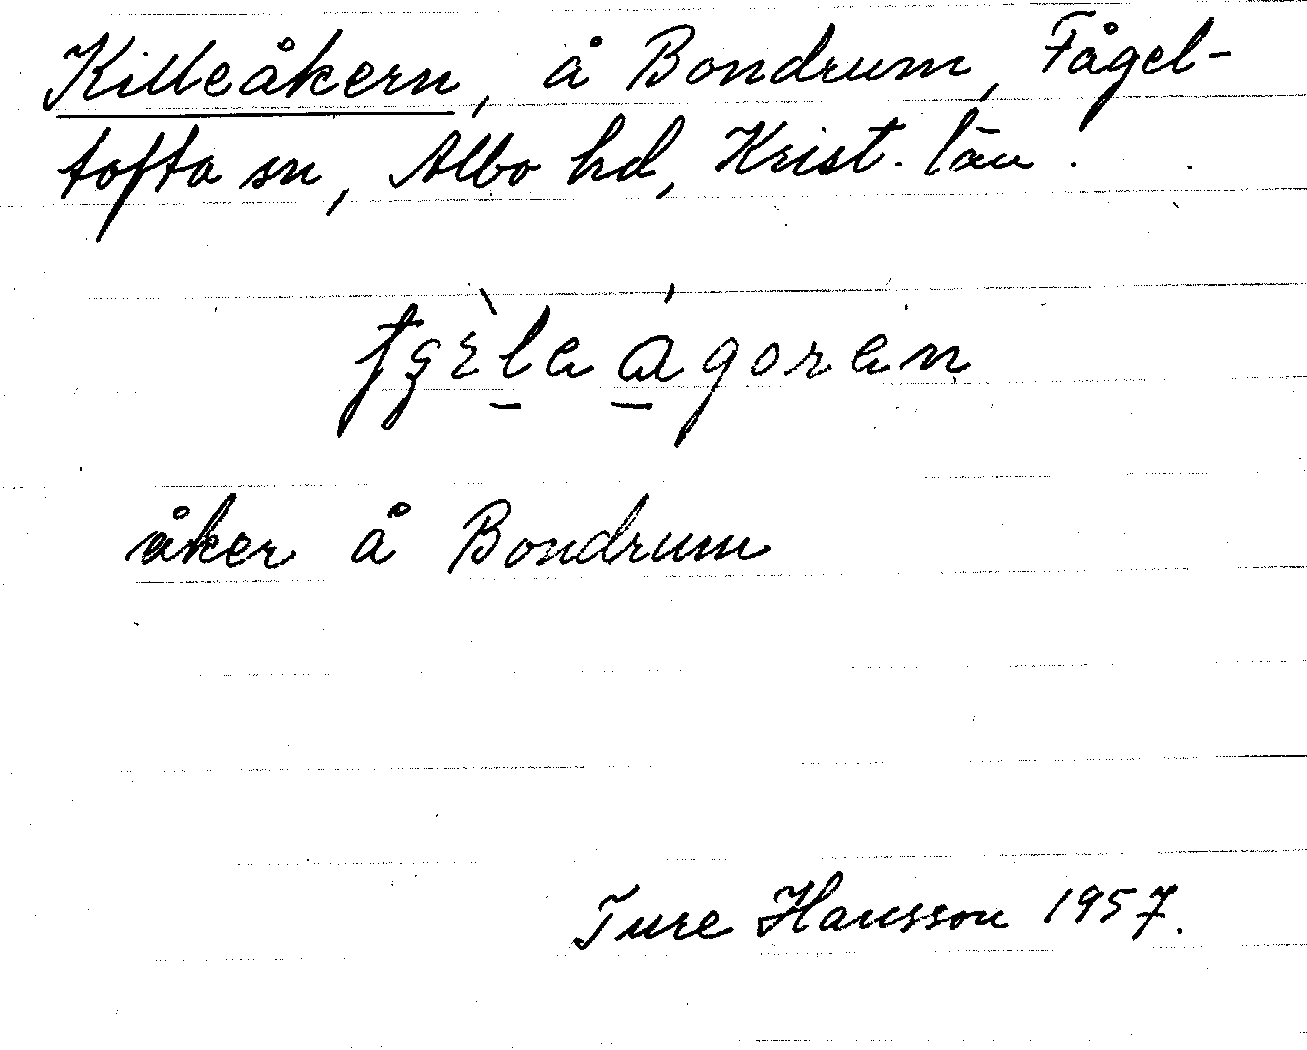 Killeåkern, å Bondrum, Fågel-
tofta sn, Albo hd, Krist. län.
åker å Bondrum
Ture Hansson 1957.